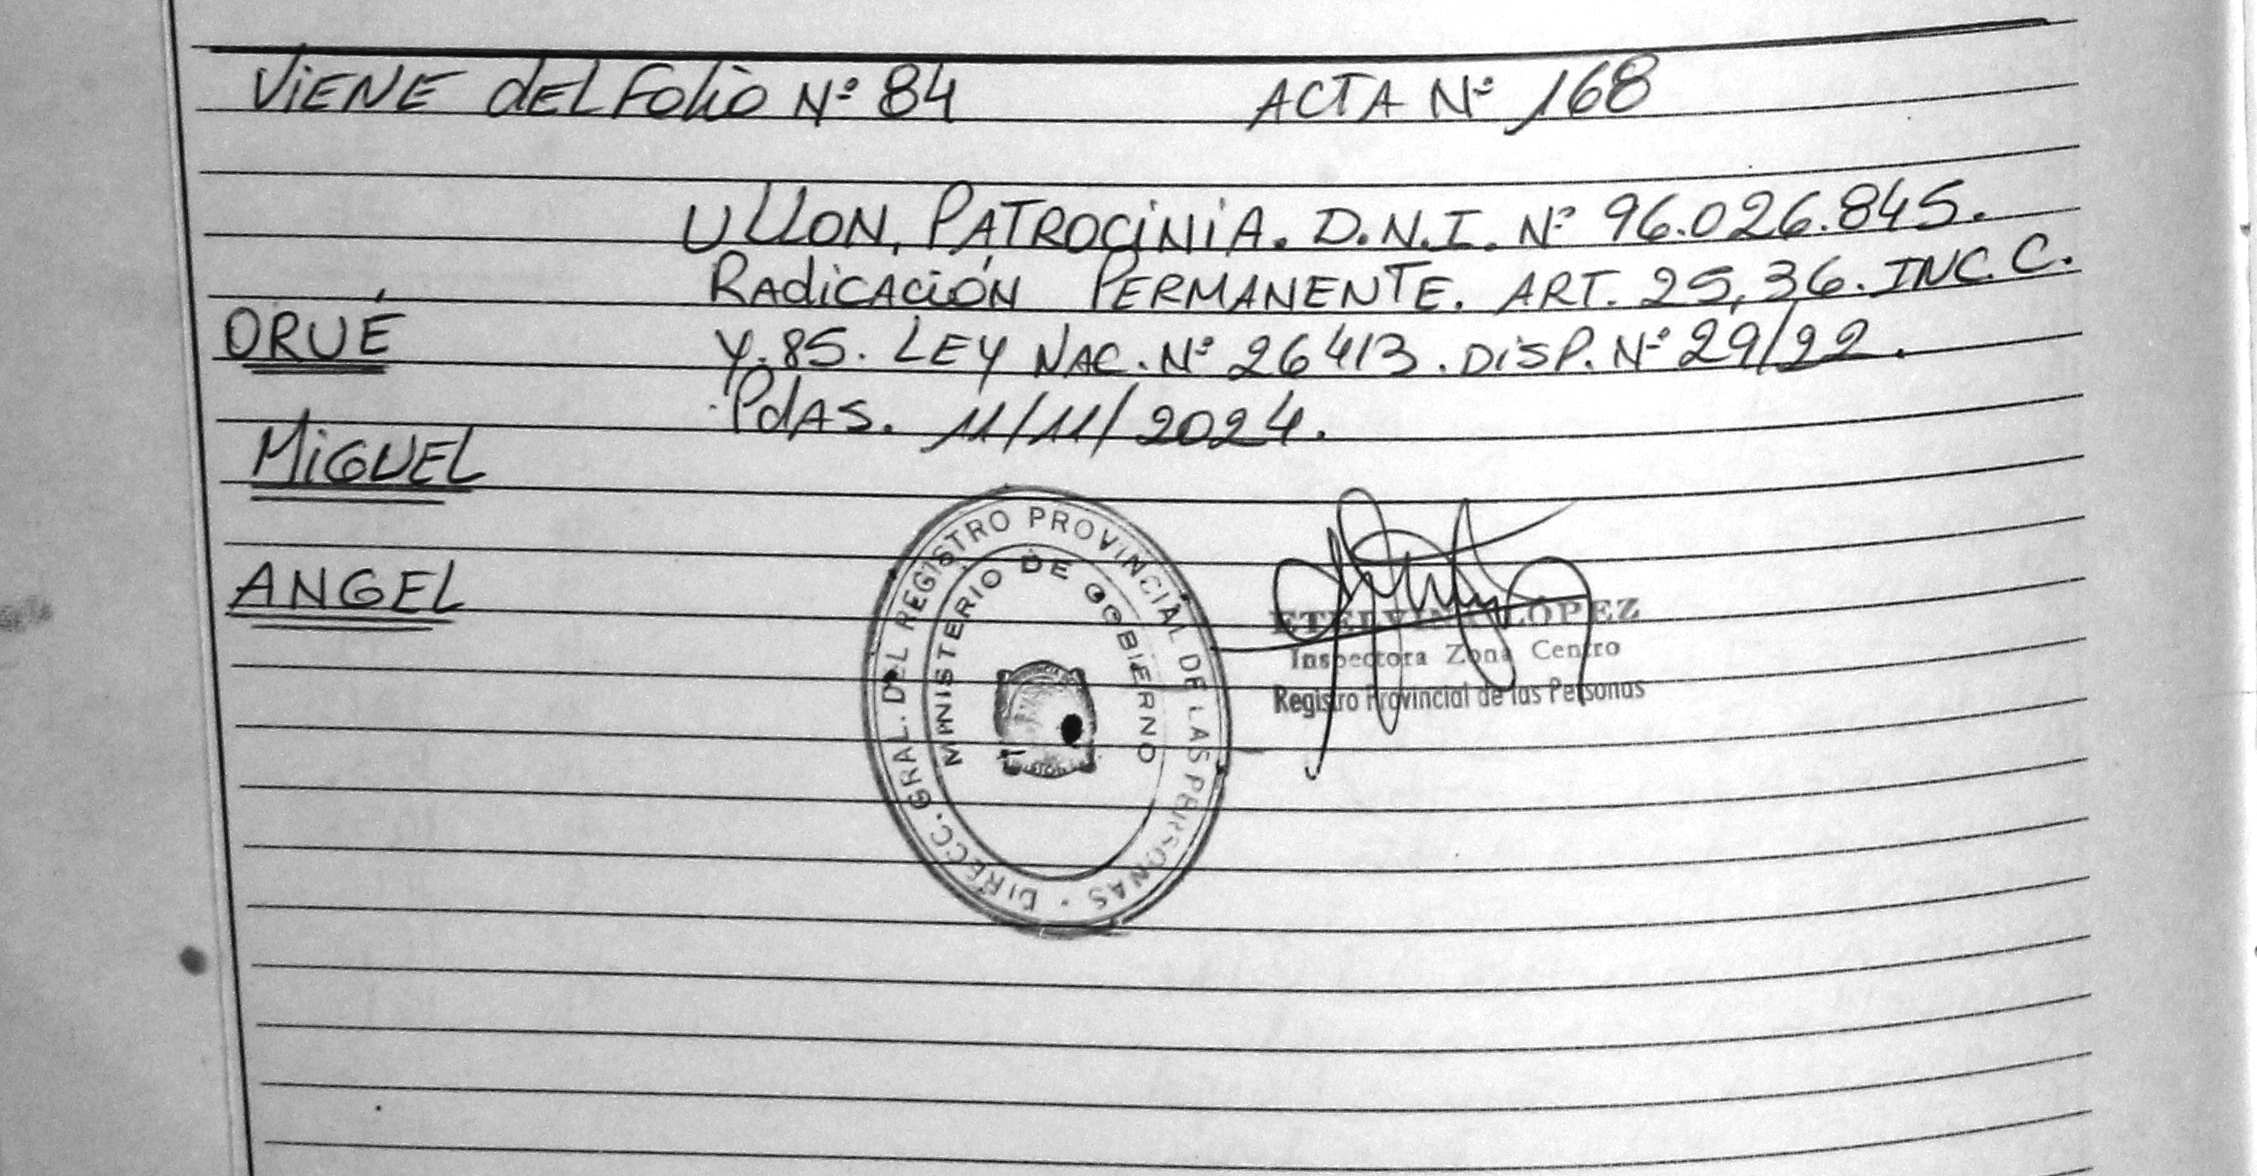 ViENE dEL Folio Nº 84 ACTA Nº 168
ULLON, PATROCiNiA. D.N.I. Nº 96.026.845.
RAdiCACiÓN PERMANENTE. ART. 25, 36. INC. C.
ORUÉ
Y. 85. LEY NAC. Nº 26413. DiSP. Nº 29/22.
PdAS. 11/11/2024.
MiGUEL
ANGEL
DIRECC. GRAL. DEL REGISTRO PROVINCIAL DE LAS PERSONAS
MINISTERIO DE GOBIERNO
ETELVINA LÓPEZ
Inspectora Zona Centro
Registro Provincial de las Personas